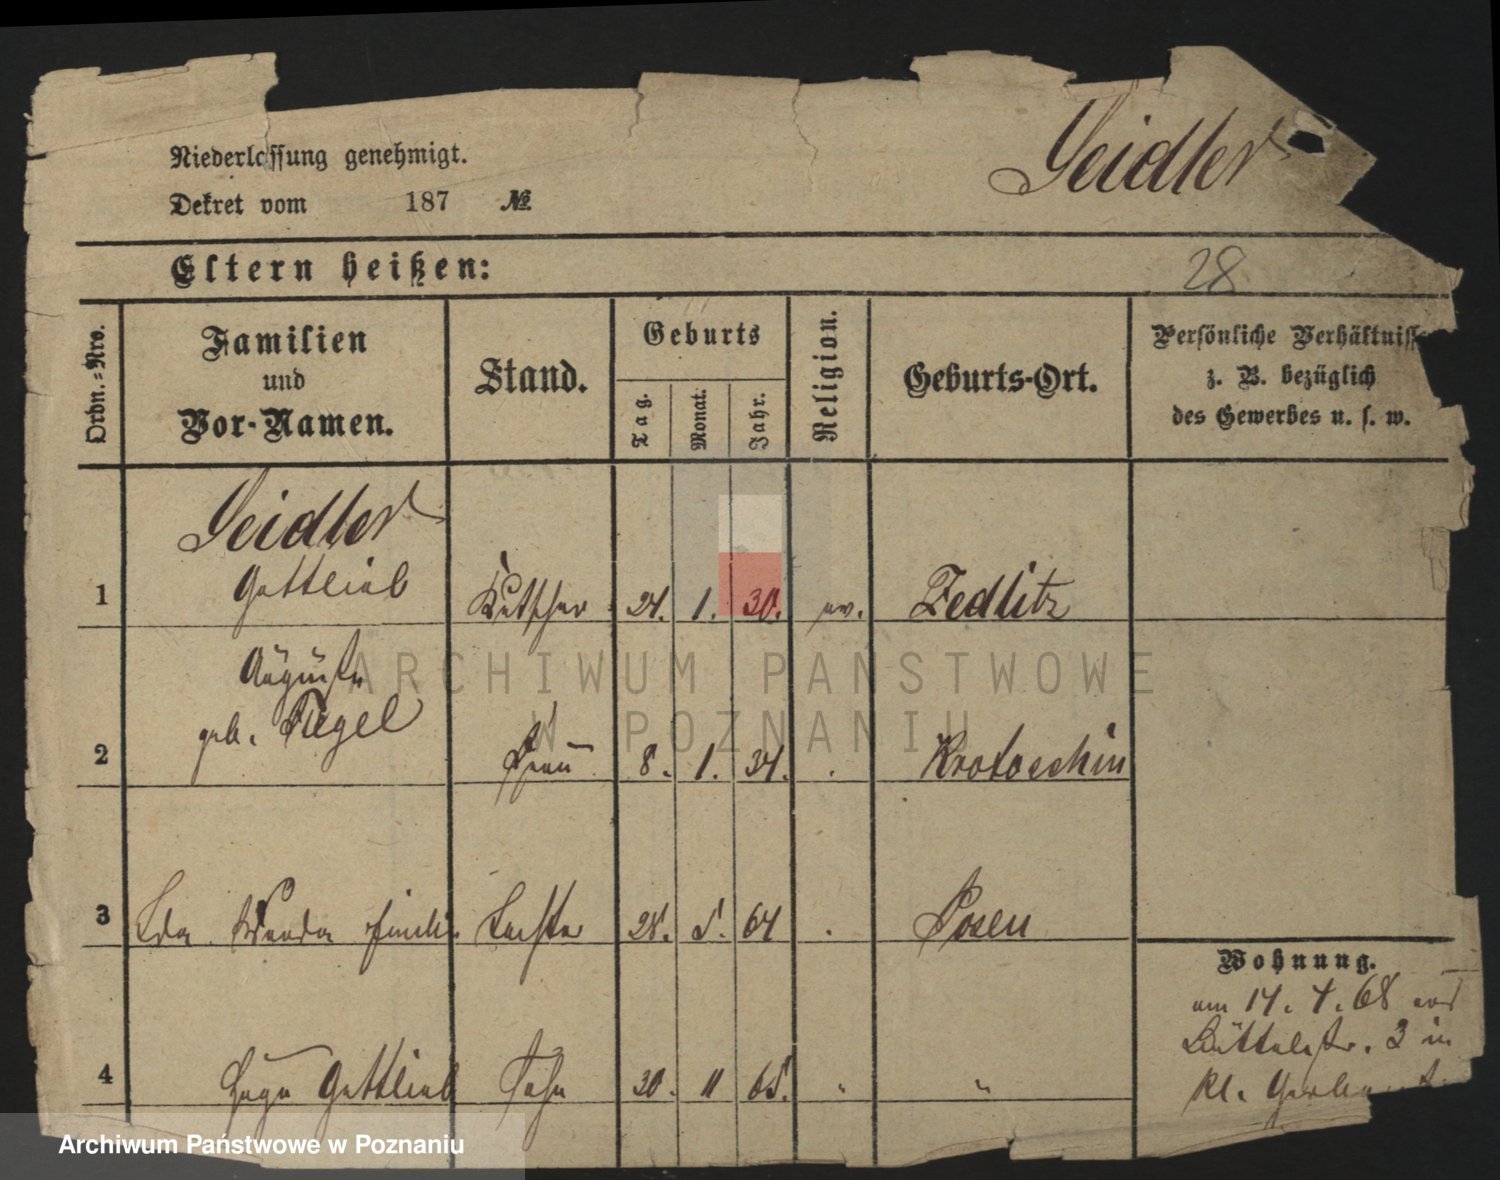 Niederlassung genehmigt.
Seidler
Dekret vom 187 №
Eltern heißen:
28
Ordn.=Nro.
Familien
und
Vor-Namen.
Stand.
Geburts
Tag.
Monat.
Jahr.
Religion.
Geburts-Ort.
Persönliche Verhältnisse
z. B. bezüglich
des Gewerbes u. s. w.
Seidler
1 Gottlieb Kutscher 24. 1. 30. ev. Zedlitz
Auguste
geb. Tiegel
2 Frau 8. 1. 34. Krotoschin
3 Ida Wanda Tochter 28. 5. 64 Posen
Wohnung.
am 14. 4. 68
Büttelstr. 3 in
4 Hugo Gottlieb Sohn 30. 11 65. " "
kl.
ARCHIWUM PAŃSTWOWE
W POZNANIU
Archiwum Państwowe w Poznaniu